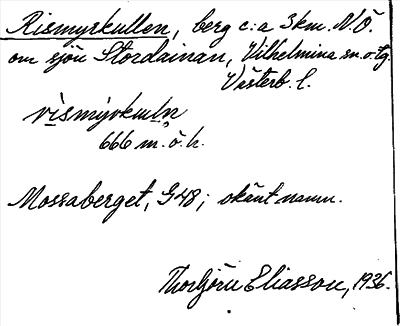 Rismyrkullen, berg c:a 3km. N.Ö.
om sjön Stordainan, Vilhelmina sn. o. tg.
Västerb. l.
rismyrkuln
666 m. ö. h.
Mossaberget, G48; okänt namn.
Thorbjörn Eliasson, 1936.